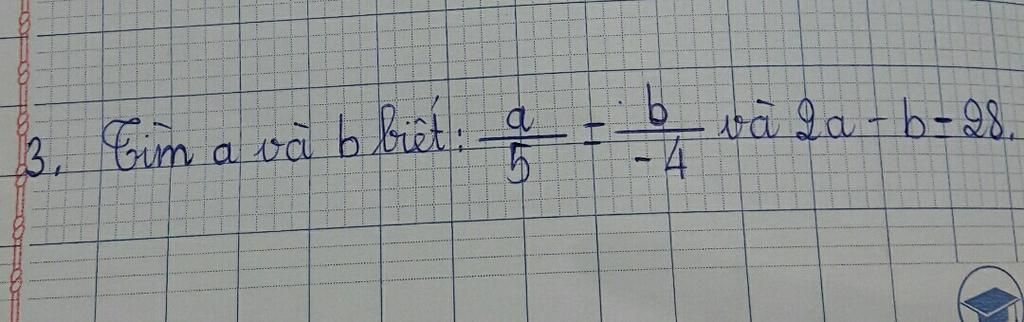 3. Tìm a và b biết: a/5 = b/-4 và 2a - b = 28.